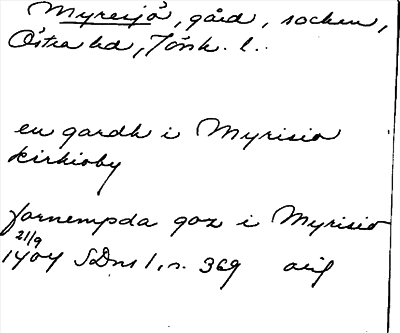 Myresjö, gård, socken,
Östra hd, Jönk. l..
en gardh i Myrisio
kirkioby
fornempda goz i Myrisio
21/9
1404 SDns 1, n. 369 orig